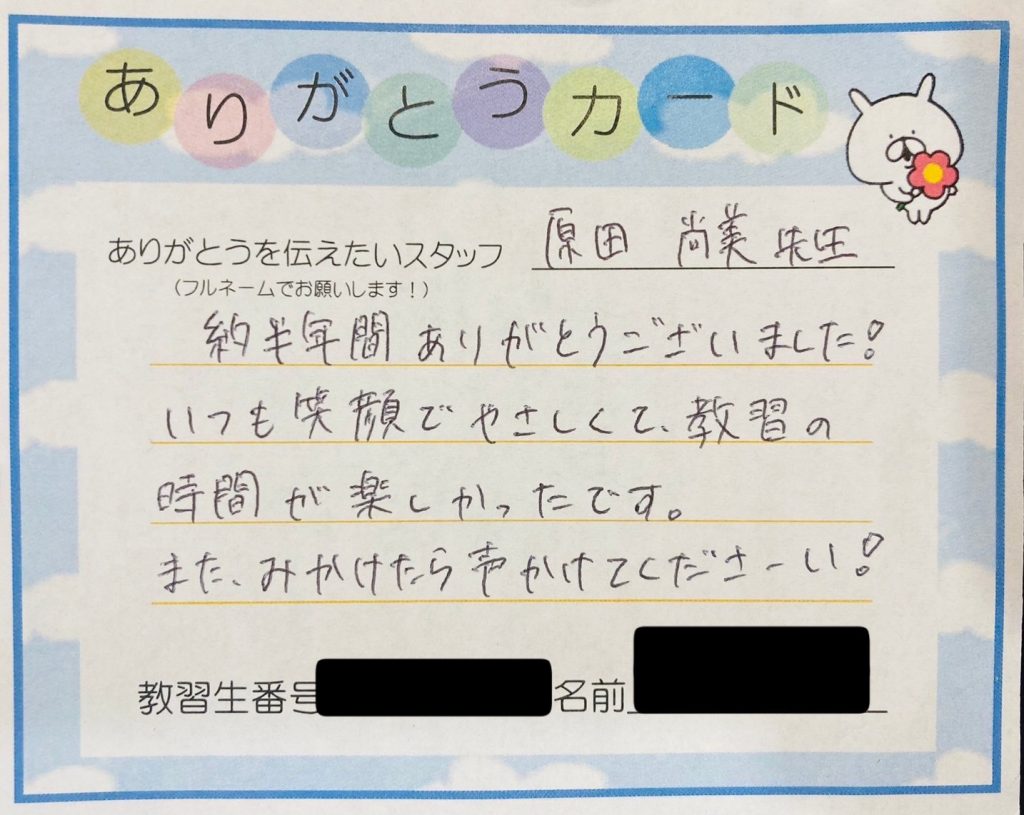 ありがとうカード
ありがとうを伝えたいスタッフ 原田 尚美 先生
(フルネームでお願いします！)
約半年間ありがとうございました！
いつも笑顔でやさしくて、教習の
時間が楽しかったです。
また、みかけたら声かけてくださーい！
教習生番号 名前